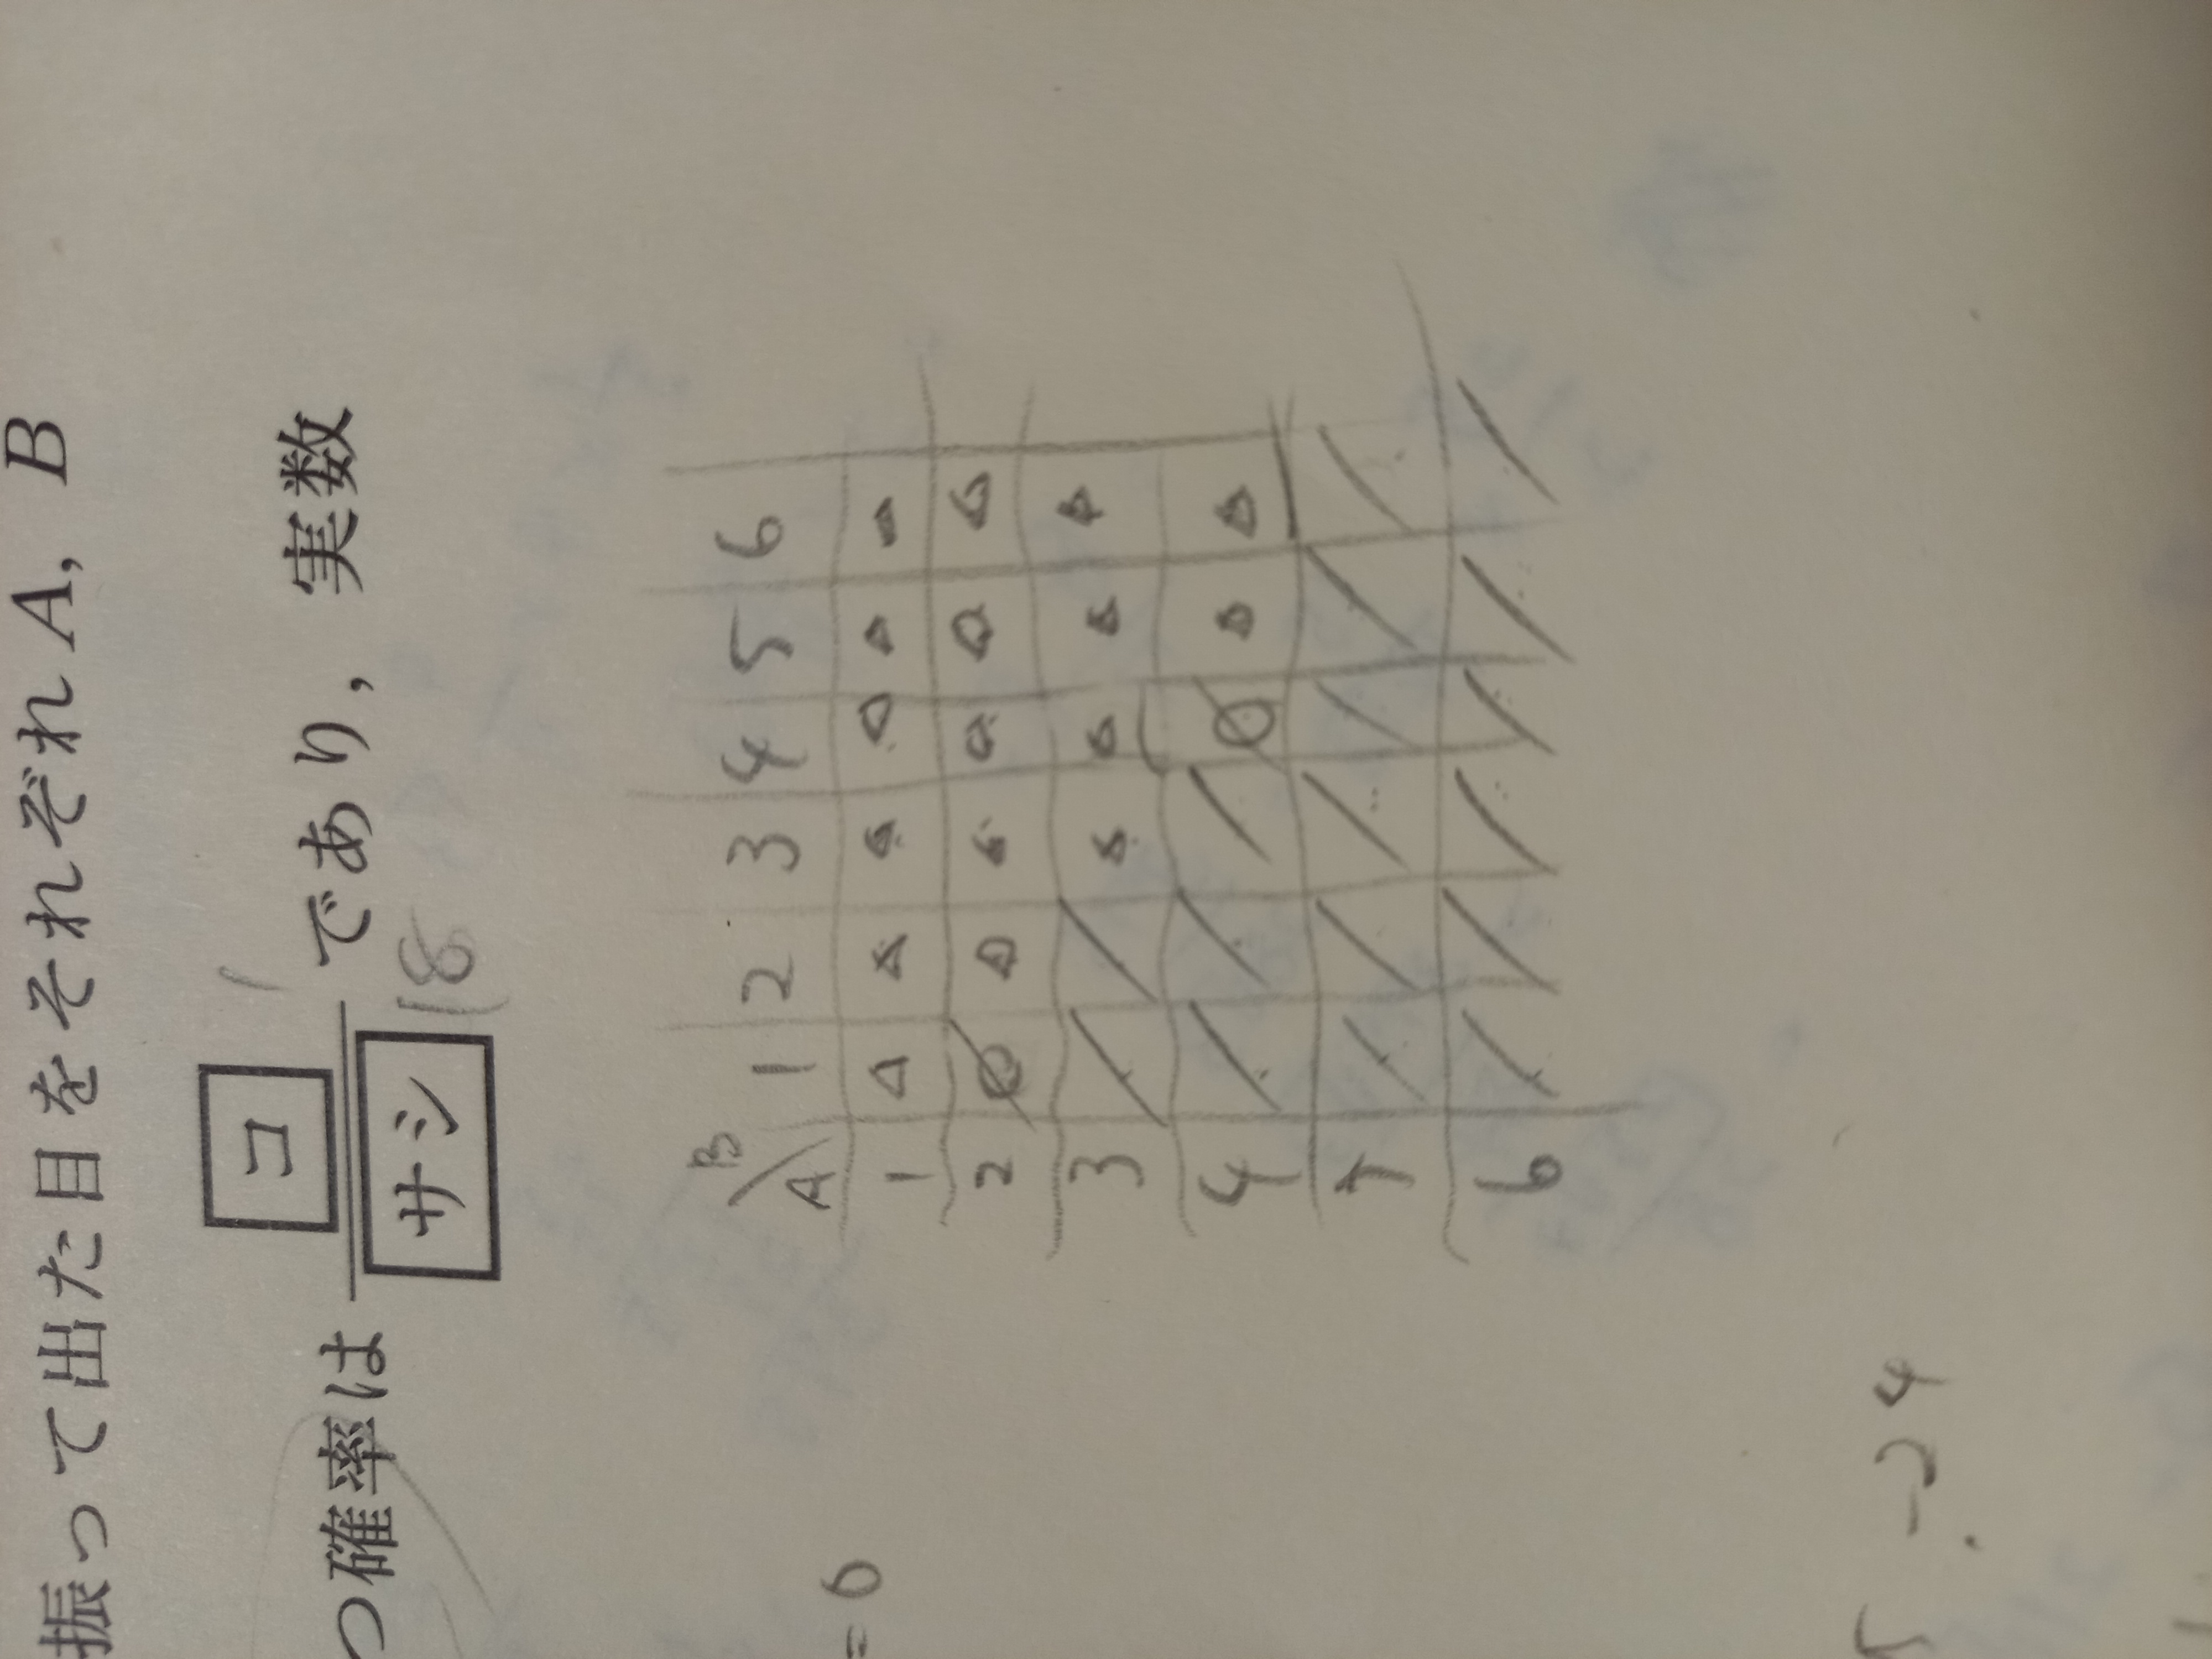 振って出た目をそれぞれ A, B
つ確率は コ/サシ であり, 実数
1
18
B
A
1 2 3 4 5 6
1
2
3
4
5
6
= 0
-24